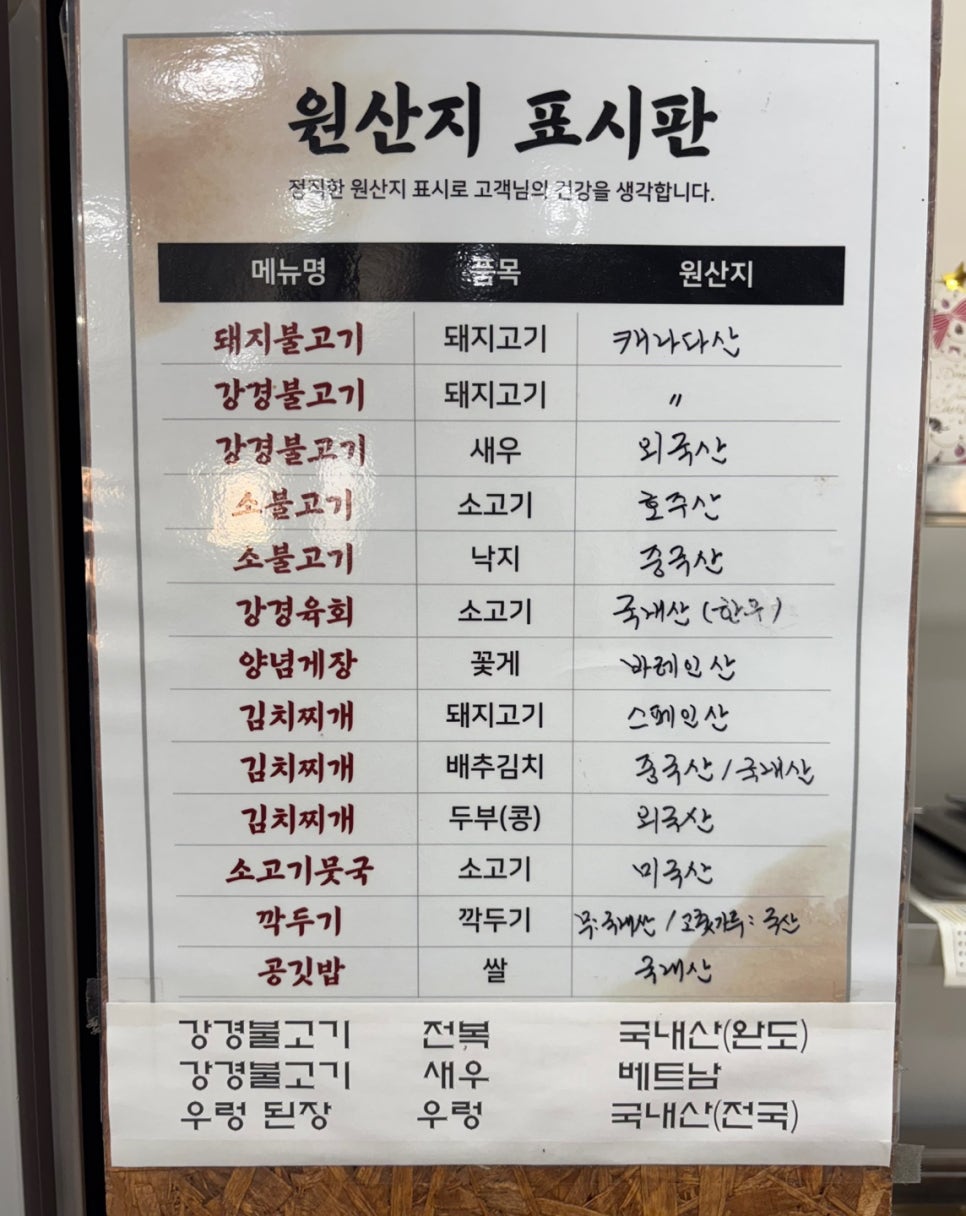 원산지 표시판
정직한 원산지 표시로 고객님의 건강을 생각합니다.
메뉴명 품목 원산지
돼지불고기 돼지고기 캐나다산
강경불고기 돼지고기 〃
강경불고기 새우 외국산
소불고기 소고기 호주산
소불고기 낙지 중국산
강경육회 소고기 국내산 (한우)
양념게장 꽃게 바레인산
김치찌개 돼지고기 스페인산
김치찌개 배추김치 중국산 / 국내산
김치찌개 두부(콩) 외국산
소고기뭇국 소고기 미국산
깍두기 깍두기 무:국내산 / 고춧가루: 국산
공깃밥 쌀 국내산
강경불고기 전복 국내산(완도)
강경불고기 새우 베트남
우렁 된장 우렁 국내산(전국)